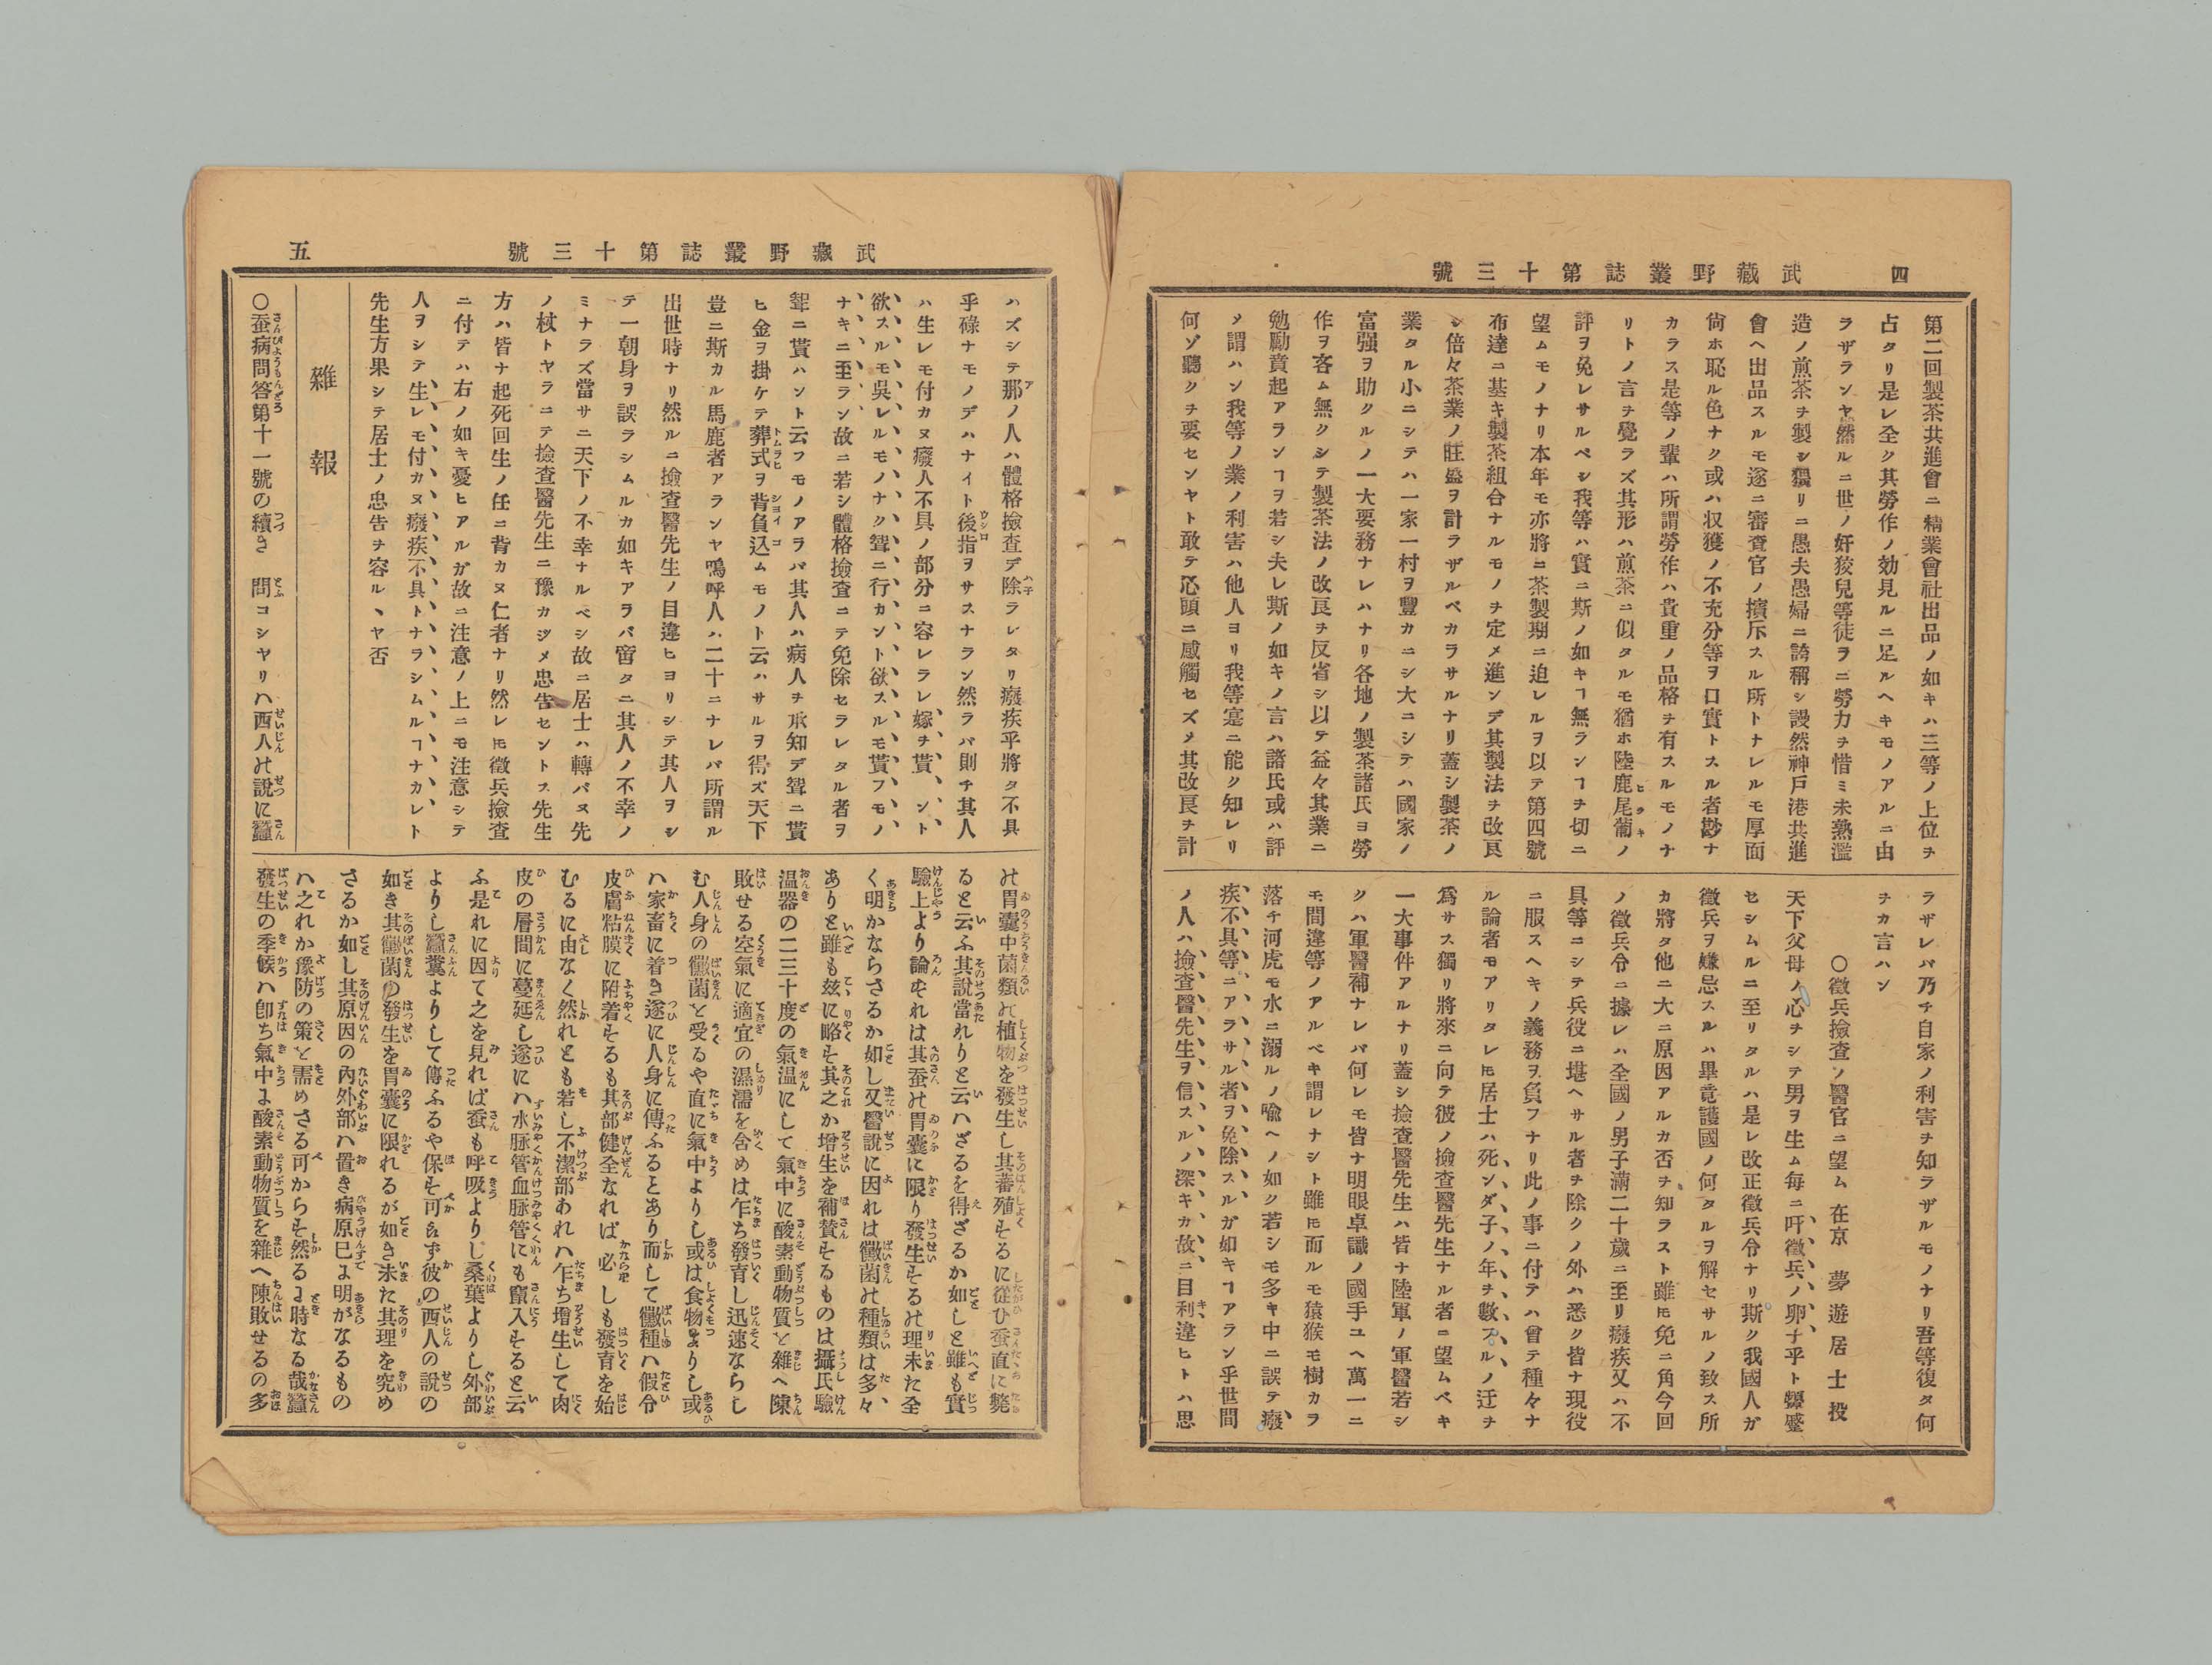 四
武藏野叢誌第十三號
第二回製茶共進會ニ精業會社出品ノ如キハ三等ノ上位ヲ
占タリ是レ全ク其勞作ノ効見ルニ足ルヘキモノアルニ由
ラザランヤ然ルニ世ノ奸狡兒等徒ラニ勞力ヲ惜ミ未熟濫
造ノ煎茶ヲ製シ猥リニ愚夫愚婦ニ誇稱シ謾然神戸港共進
會ヘ出品スルモ遂ニ審査官ノ擯斥スル所トナレルモ厚面
尙ホ恥ル色ナク或ハ収獲ノ不充分等ヲ口實トスル者尠ナ
カラス是等ノ輩ハ所謂勞作ハ貴重ノ品格ヲ有スルモノナ
リトノ言ヲ覺ラズ其形ハ煎茶ニ似タルモ猶ホ陸鹿尾葡ノ
評ヲ免レサルベシ我等ハ實ニ斯ノ如キヿ無ランヿヲ切ニ
望ムモノナリ本年モ亦將ニ茶製期ニ迫レルヲ以テ第四號
布達ニ基キ製茶組合ナルモノヲ定メ進ンデ其製法ヲ改良
シ倍々茶業ノ旺盛ヲ計ラザルベカラサルナリ蓋シ製茶ノ
業タル小ニシテハ一家一村ヲ豐カニシ大ニシテハ國家ノ
富强ヲ助クルノ一大要務ナレハナリ各地ノ製茶諸氏ヨ勞
作ヲ吝ム無クシテ製茶法ノ改良ヲ反省シ以テ益々其業ニ
勉勵賁起アランヿヲ若シ夫レ斯ノ如キノ言ハ諸氏或ハ評
メ謂ハン我等ノ業ノ利害ハ他人ヨリ我等寔ニ能ク知レリ
何ゾ聽クヲ要センヤト敢テ芯頭ニ感觸セズメ其改良ヲ計
ラザレバ乃チ自家ノ利害ヲ知ラザルモノナリ吾等復タ何
ヲカ言ハン
〇徵兵撿査ノ醫官ニ望ム 在京 夢遊居士投
天下父母ノ心ヲシテ男ヲ生ム每ニ吁徵兵ノ卵子乎ト顰蹙
セシムルニ至リタルハ是レ改正徵兵令ナリ斯ク我國人ガ
徵兵ヲ嫌忌スルハ畢竟護國ノ何タルヲ解セサルノ致ス所
カ將タ他ニ大ニ原因アルカ否ヲ知ラスト雖𪜈免ニ角今回
ノ徵兵令ニ據レハ全國ノ男子滿二十歲ニ至リ癈疾又ハ不
具等ニシテ兵役ニ堪ヘサル者ヲ除クノ外ハ悉ク皆ナ現役
ニ服スヘキノ義務ヲ負フナリ此ノ事ニ付テハ曾テ種々ナ
ル論者モアリタレ𪜈居士ハ死ンダ子ノ年ヲ數フルノ迂ヲ
爲サス獨リ將來ニ向テ彼ノ撿查醫先生ナル者ニ望ムベキ
一大事件アルナリ蓋シ撿査醫先生ハ皆ナ陸軍ノ軍醫若シ
クハ軍醫補ナレバ何レモ皆ナ明眼卓識ノ國手ユヘ萬一ニ
モ間違等ノアルベキ謂レナシト雖𪜈而ルモ猿猴モ樹カラ
落チ河虎モ水ニ溺ルノ喩ヘノ如ク若シモ多キ中ニ誤テ癈
疾不具等ニアラサル者ヲ免除スルガ如キヿアラン乎世間
ノ人ハ撿查醫先生ヲ信スルノ深キカ故ニ目利違ヒトハ思
武藏野叢誌第十三號
五
ハズシテ那ノ人ハ體格撿查デ除ラレタリ癈疾乎將タ不具
乎碌ナモノデハナイト後指ヲサスナラン然ラバ則チ其人
ハ生レモ付カヌ癈人不具ノ部分ニ容レラレ嫁ヲ貰ハント
欲スルモ吳レルモノナク聟ニ行カント欲スルモ貰フモノ
ナキニ至ラン故ニ若シ體格撿査ニテ免除セラレタル者ヲ
聟ニ貰ハント云フモノアラバ其人ハ病人ヲ承知デ聟ニ貰
ヒ金ヲ掛ケテ葬式ヲ背負込ムモノト云ハサルヲ得ズ天下
豈ニ斯カル馬鹿者アランヤ嗚呼人ハ二十ニナレバ所謂ル
出世時ナリ然ルニ撿査醫先生ノ目違ヒヨリシテ其人ヲシ
テ一朝身ヲ誤ラシムルカ如キアラバ啻タニ其人ノ不幸ノ
ミナラズ當サニ天下ノ不幸ナルベシ故ニ居士ハ轉バヌ先
ノ杖トヤラニテ撿査醫先生ニ豫カジメ忠告セントス先生
方ハ皆ナ起死回生ノ任ニ背カヌ仁者ナリ然レ𪜈徵兵撿査
ニ付テハ右ノ如キ憂ヒアルガ故ニ注意ノ上ニモ注意シテ
人ヲシテ生レモ付カヌ癈疾不具トナラシムルヿナカレト
先生方果シテ居士ノ忠告ヲ容ルヽヤ否
雜報
〇蚕病問答第十一號の續き 問コシヤリハ西人の說に蠶
の胃囊中菌類の植物を發生し其蕃殖するに從ひ蚕直に斃
ると云ふ其說當れりと云ハざるを得ざるか如しと雖も實
驗上より論ずれは其蚕の胃囊に限り發生するの理未た全
く明かならさるか如し又醫說に因れは黴菌の種類は多々
ありと雖も玆に略す其之か增生を補賛するものは攝氏驗
温器の二三十度の氣温にして氣中に酸素動物質を雜へ陳
敗せる空氣に適宜の濕濡を含めは乍ち發育し迅速ならし
む人身の黴菌を受るや直に氣中よりし或は食物よりし或
ハ家畜に着き遂に人身に傳ふるとあり而して黴種ハ假令
皮膚粘膜に附着するも其部健全なれば必しも發育を始
むるに由なく然れとも若し不潔部あれハ乍ち增生して肉
皮の層間に蔓延し遂にハ水脈管血脈管にも竄入すると云
ふ是れに因て之を見れば蚕も呼吸よりし桑葉よりし外部
よりし蠶糞よりして傳ふるや保す可らず彼の西人の說の
如き其黴菌の發生を胃囊に限れるが如き未た其理を究め
さるか如し其原因の內外部ハ置き病原已に明がなるもの
ハ之れか豫防の策を需めさる可からす然るに時なる哉蠶
發生の季候ハ卽ち氣中に酸素動物質を雜へ陳敗せるの多